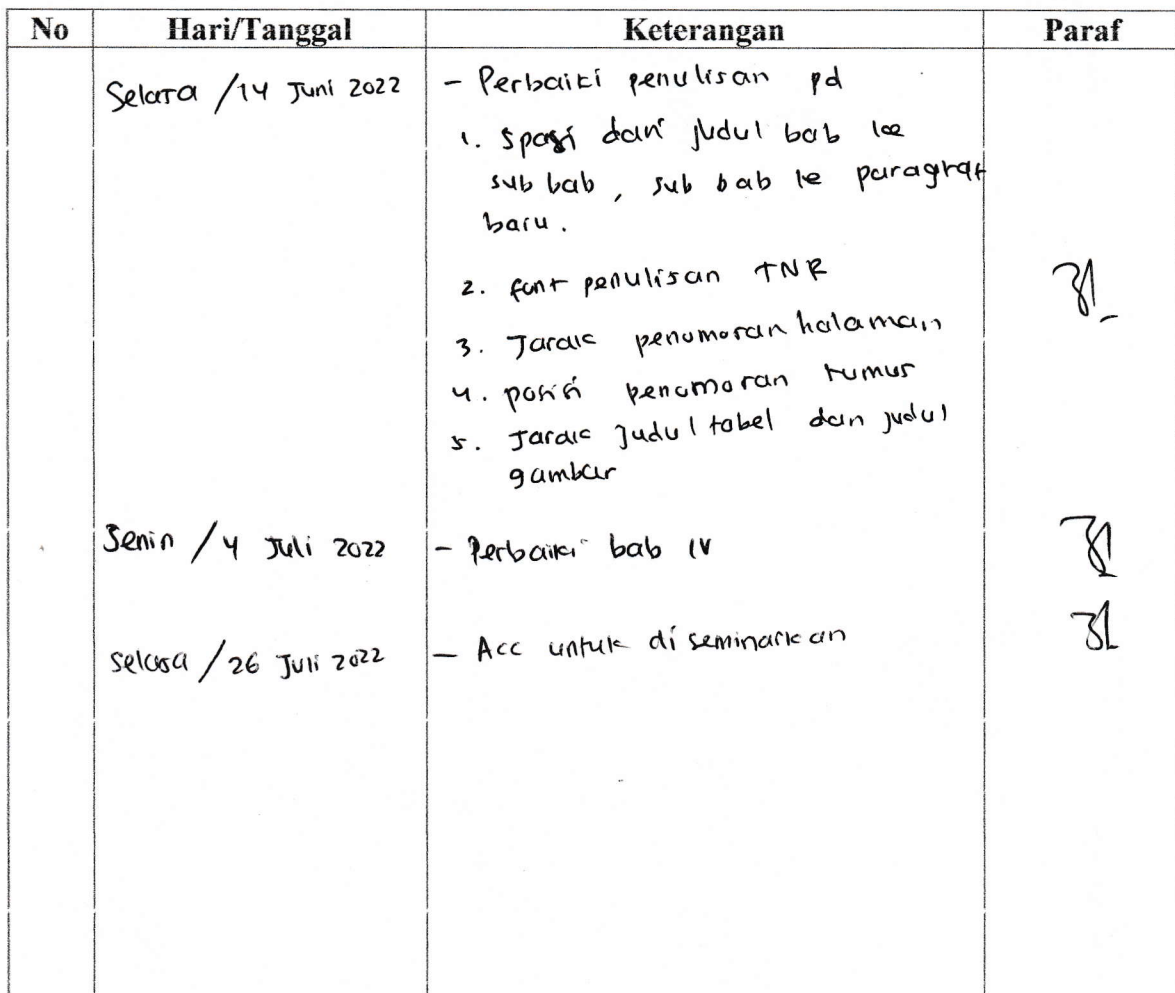 No Hari/Tanggal Keterangan Paraf
Selasa / 14 Juni 2022 - Perbaiki penulisan pd
1. Spasi dari judul bab ke
sub bab, sub bab ke paragraf
baru.
2. font penulisan TNR
3. Jarak penomoran halaman
4. posisi penomoran rumus
5. Jarak judul tabel dan judul
gambar
Senin / 4 Juli 2022 - Perbaiki bab IV
Selasa / 26 Juli 2022 - Acc untuk diseminarkan